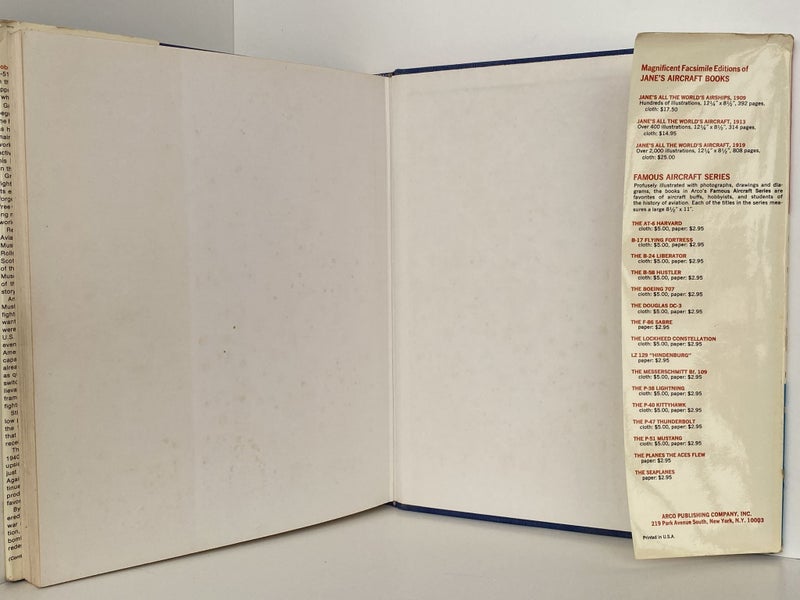 Magnificent Facsimile Editions of
JANE'S AIRCRAFT BOOKS
JANE'S ALL THE WORLD'S AIRSHIPS, 1909
Hundreds of illustrations, 12¼" x 8½", 392 pages,
cloth: $17.50
JANE'S ALL THE WORLD'S AIRCRAFT, 1913
Over 400 illustrations, 12¼" x 8½", 314 pages,
cloth: $14.95
JANE'S ALL THE WORLD'S AIRCRAFT, 1919
Over 2,000 illustrations, 12¼" x 8½", 808 pages,
cloth: $25.00
FAMOUS AIRCRAFT SERIES
Profusely illustrated with photographs, drawings and dia-
grams, the books in Arco's Famous Aircraft Series are
favorites of aircraft buffs, hobbyists, and students of
the history of aviation. Each of the titles in the series mea-
sures a large 8½" x 11".
THE AT-6 HARVARD
cloth: $5.00, paper: $2.95
B-17 FLYING FORTRESS
cloth: $5.00, paper: $2.95
THE B-24 LIBERATOR
cloth: $5.00, paper: $2.95
THE B-58 HUSTLER
cloth: $5.00, paper: $2.95
THE BOEING 707
cloth: $5.00, paper: $2.95
THE DOUGLAS DC-3
cloth: $5.00, paper: $2.95
THE F-86 SABRE
paper: $2.95
THE LOCKHEED CONSTELLATION
cloth: $5.00, paper: $2.95
LZ 129 "HINDENBURG"
paper: $2.95
THE MESSERSCHMITT Bf. 109
cloth: $5.00, paper: $2.95
THE P-38 LIGHTNING
cloth: $5.00, paper: $2.95
THE P-40 KITTYHAWK
cloth: $5.00, paper: $2.95
THE P-47 THUNDERBOLT
cloth: $5.00, paper: $2.95
THE P-51 MUSTANG
cloth: $5.00, paper: $2.95
THE PLANES THE ACES FLEW
paper: $2.95
THE SEAPLANES
paper: $2.95
ARCO PUBLISHING COMPANY, INC.
219 Park Avenue South, New York, N.Y. 10003
Printed in U.S.A.